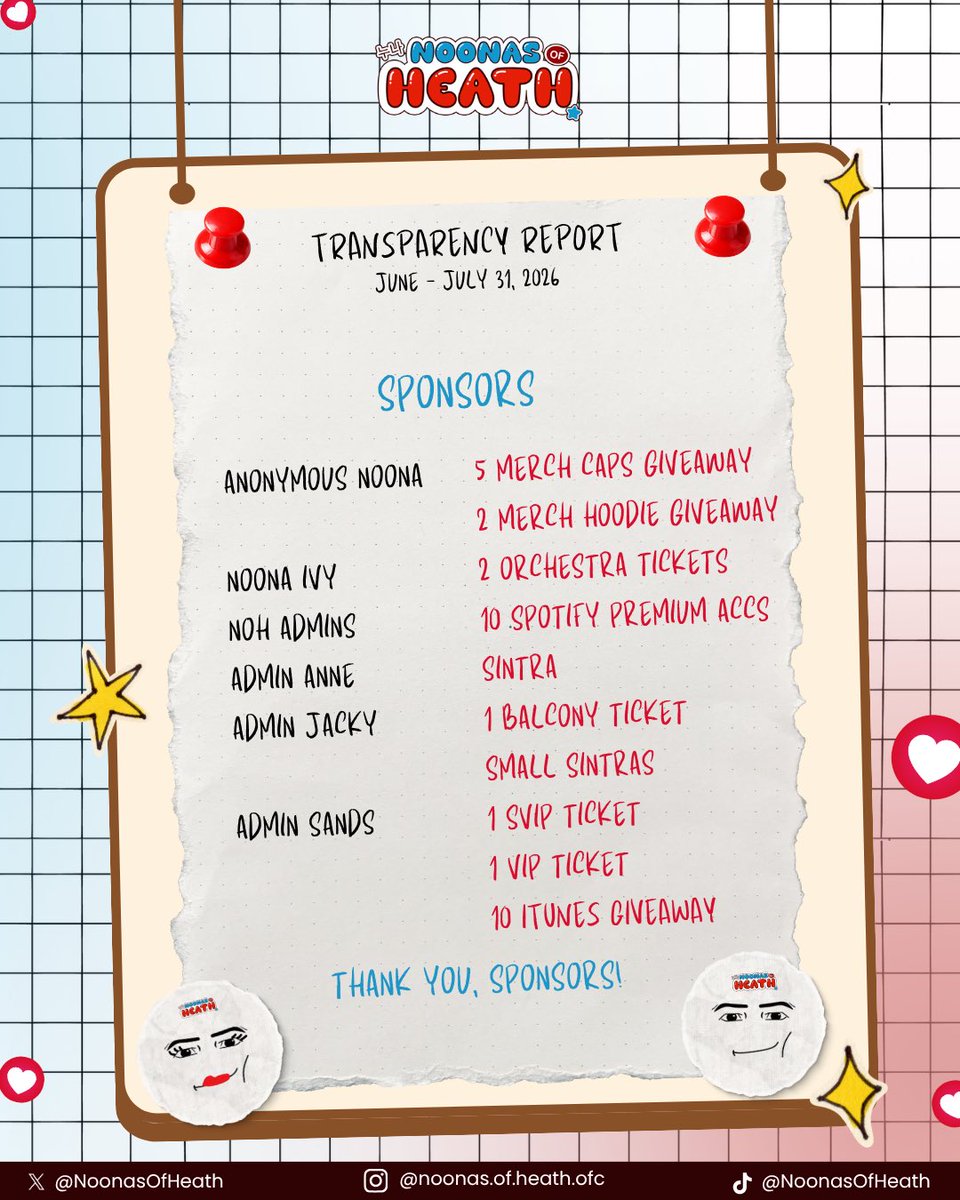 누나 NOONAS OF
HEATH
TRANSPARENCY REPORT
JUNE - JULY 31, 2026
SPONSORS
ANONYMOUS NOONA 5 MERCH CAPS GIVEAWAY
2 MERCH HOODIE GIVEAWAY
NOONA IVY 2 ORCHESTRA TICKETS
NOH ADMINS 10 SPOTIFY PREMIUM ACCS
ADMIN ANNE SINTRA
ADMIN JACKY 1 BALCONY TICKET
SMALL SINTRAS
ADMIN SANDS 1 SVIP TICKET
1 VIP TICKET
10 ITUNES GIVEAWAY
THANK YOU, SPONSORS!
NOONAS OF
HEATH
NOONAS OF
HEATH
@NoonasOfHeath @noonas.of.heath.ofc @NoonasOfHeath